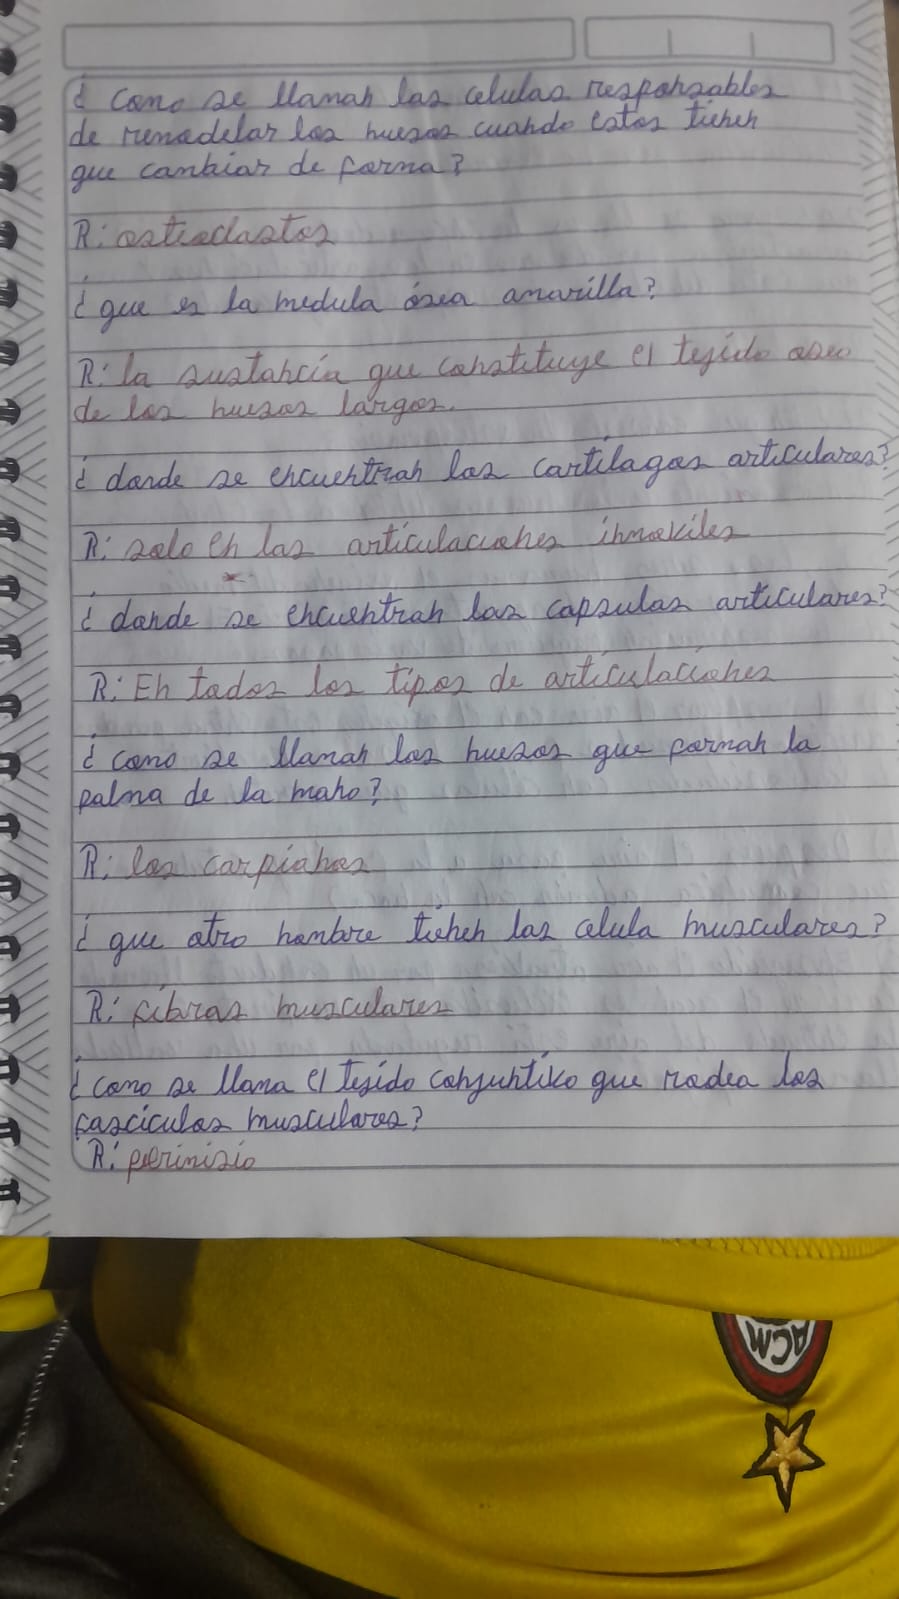 ¿ Como se llaman las celulas responsables
de remodelar los huesos cuando estos tienen
que cambiar de forma?
R: osteoclastos
¿ que es la medula ósea amarilla?
R: la sustancia que constituye el tejido oseo
de los huesos largos.
¿ donde se encuentran los cartilagos articulares?
R: solo en las articulaciones inmoviles
¿ donde se encuentran las capsulas articulares?
R: En todos los tipos de articulaciones
¿ como se llaman los huesos que forman la
palma de la mano?
R: los carpianos
¿ que otro nombre tienen las celula musculares?
R: fibras musculares
¿ como se llama el tejido conjuntivo que rodea los
fasciculos musculares?
R: perimisio
ACM